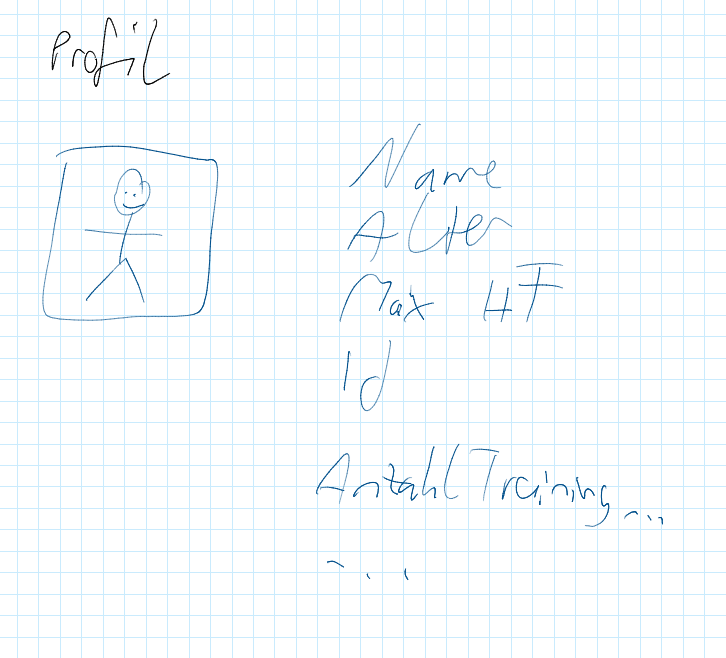 Profil
Name
Alter
Max HF
Id
Anzahl Training...
...